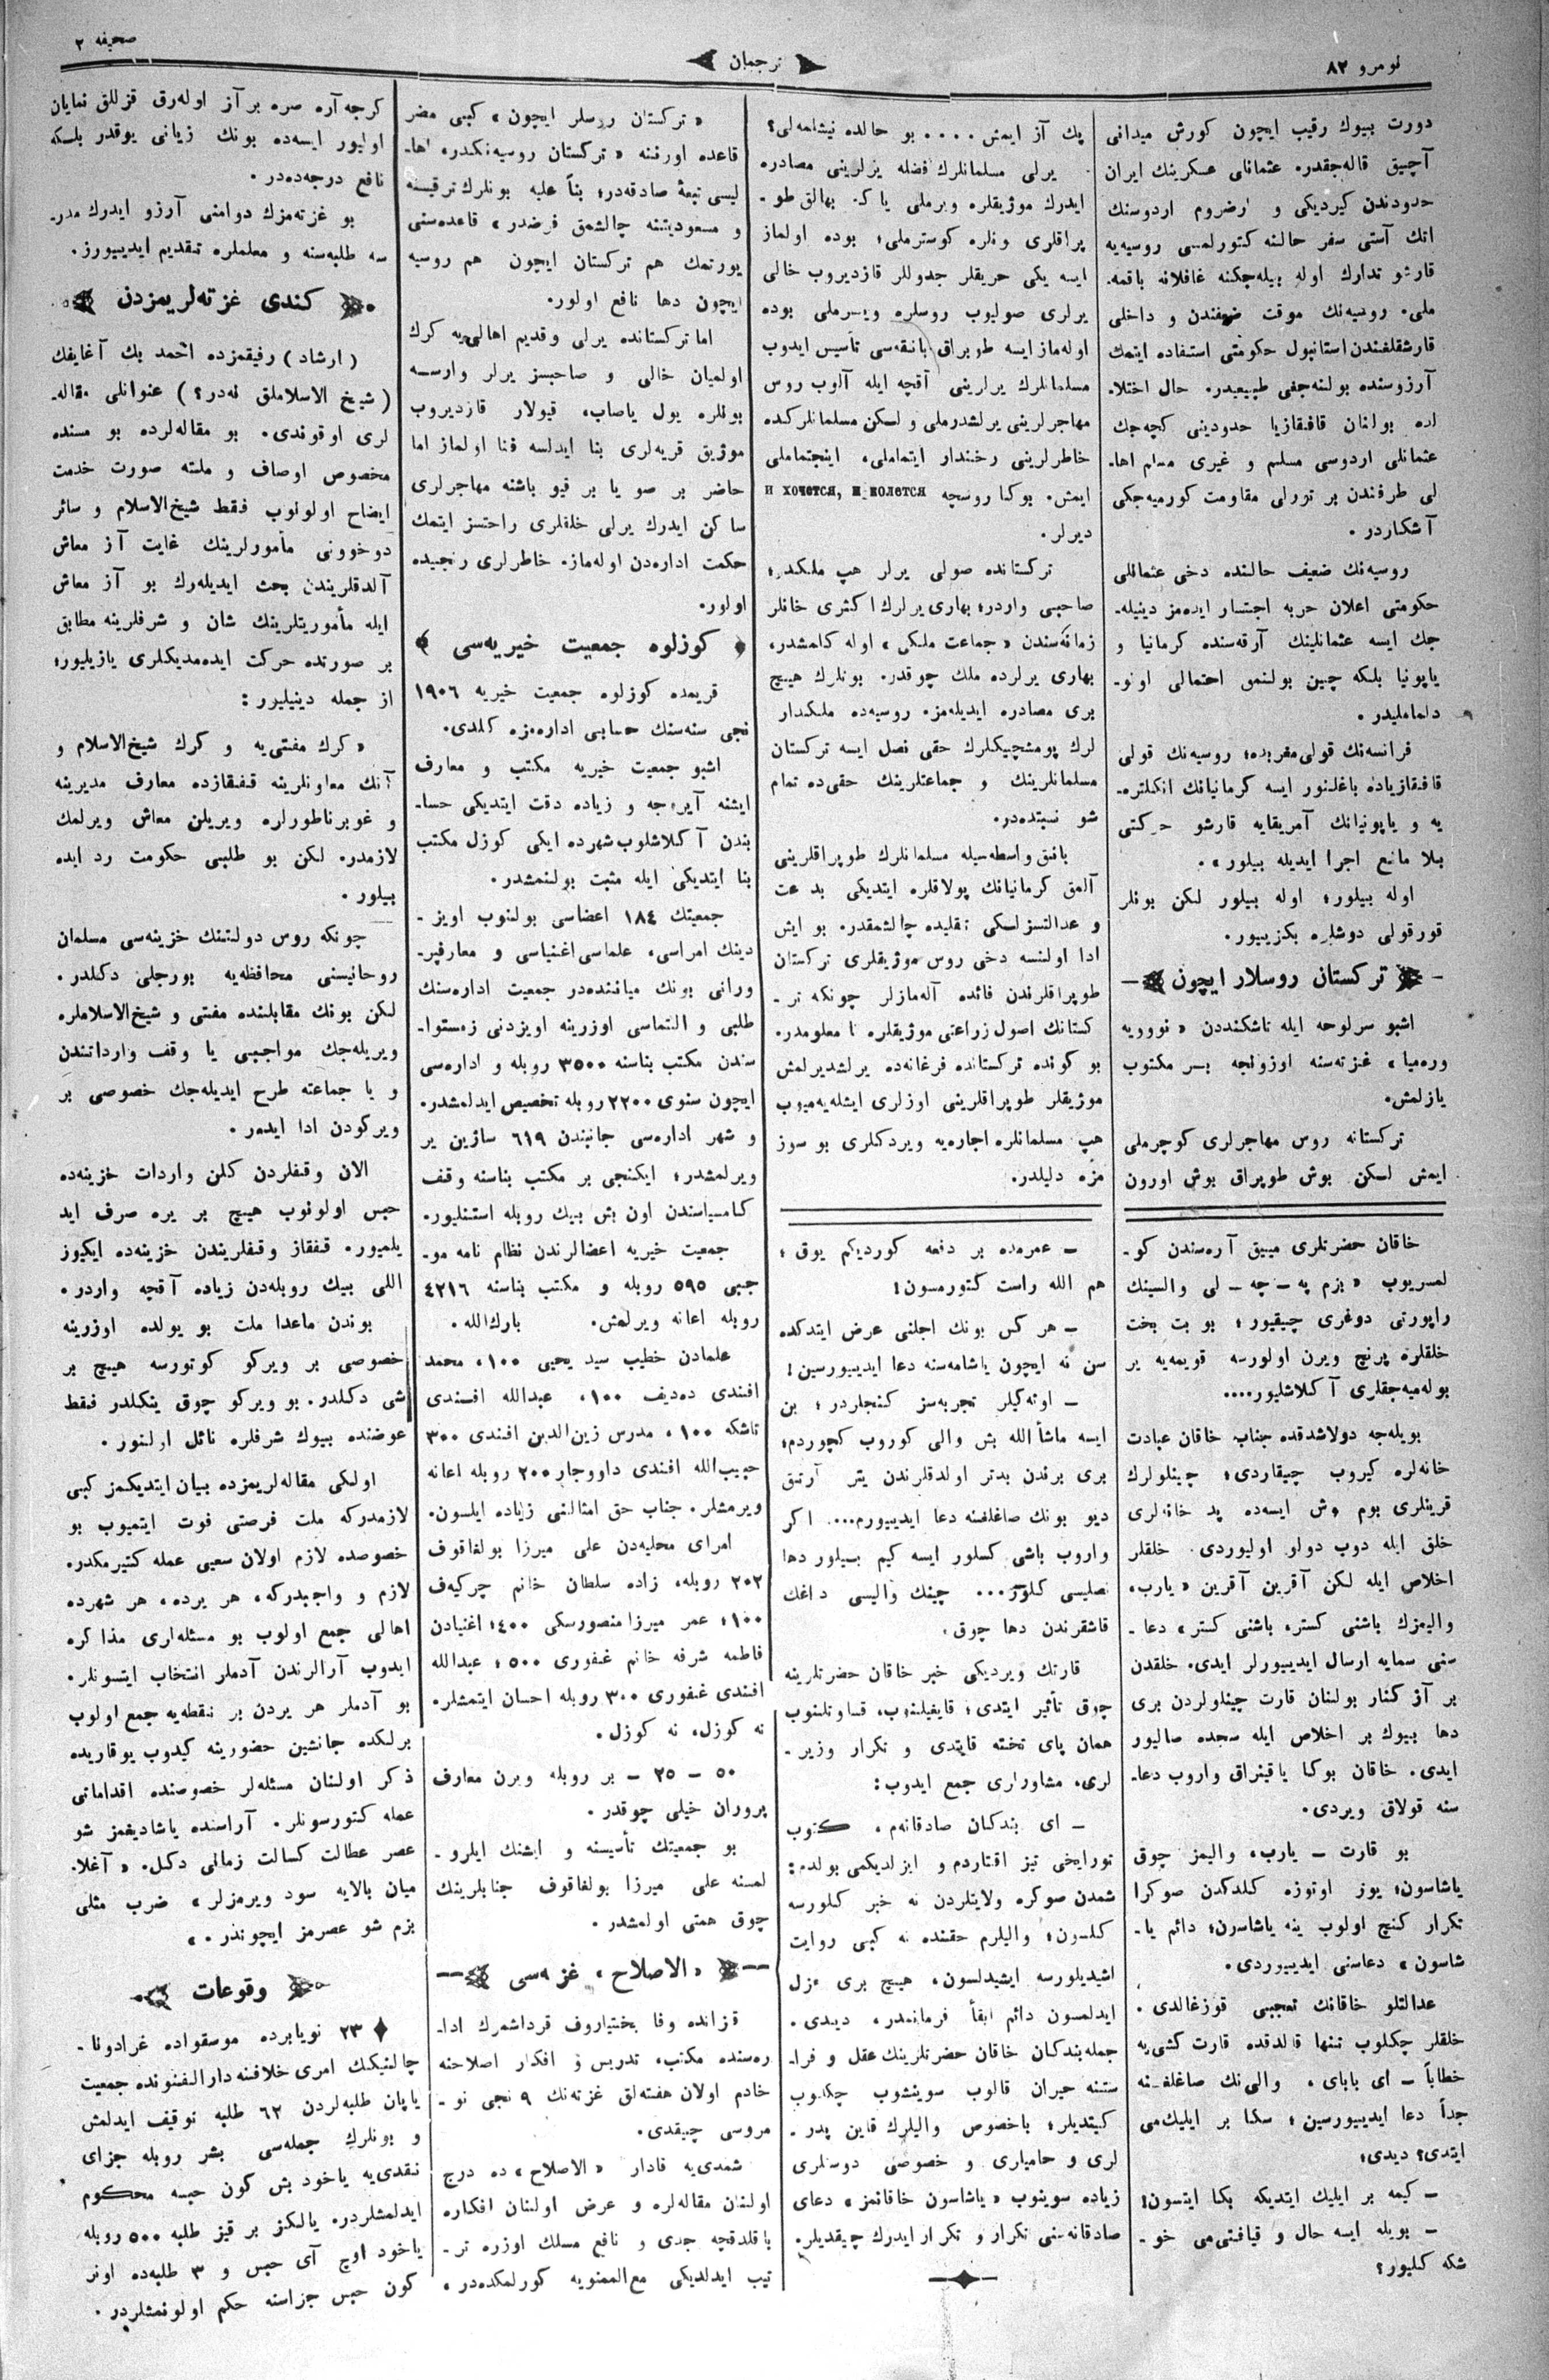 نومرو ٨٢
ترجمان
صحیفه ٢
دورت بیوك رقیب ایچون كورش میدانی
آچیق قاله‌جقدر. عثمانلی عسكرینك ایران
حدودندن كیردیكی و ارضروم اردوسنك
انك آستی سفر حالنه كتورلمسی روسیه‌یه
قارشو تدارك اوله بیله‌جكنه غافلانه باقمه‌-
ملی. روسیه‌نك موقت ضعفندن و داخلی
قارشقلغندن استانبول حكومتی استفاده ایتمك
آرزوسنده بولنه‌جغی طبیعیدر. حال اختلا-
لده بولنان قافقازیا حدودینی كچه‌جك
عثمانلی اردوسی مسلم و غیری مسلم اها-
لی طرفندن بر تورلی مقاومت كورمیه‌جكی
آشكاردر.
روسیه‌نك ضعیف حالنده دخی عثمانلی
حكومتی اعلان حربه اجتسار ایده‌مز دینیله-
جك ایسه عثمانلینك آرقه‌سنده كرمانیا و
یاپونیا بلكه چین بولنمق احتمالی اونو-
دلماملیدر.
فرانسه‌نك قولی مغربده؛ روسیه‌نك قولی
قافقازیاده باغلنور ایسه كرمانیانك انكلتره-
یه و یاپونیانك آمریقایه قارشو حركتی
بلا مانع اجرا ایدیله بیلور».
اوله بیلور؛ اوله بیلور لكن بونلر
قورقولی دوشلره بكزییور.
تركستان روسلار ایچون
اشبو سرلوحه ایله تاشكنددن «نوویه
وره‌میا» غزته‌سنه اوزونجه بر مكتوب
یازلمش.
تركستانه روس مهاجرلری كوچرملی
ایمش لسكن بوش طوپراق بوش اورون
خاقان حضرتلری مییق آره‌سندن كو-
لمسریوب «بزم په – چه – لی والسینك
راپورتی دوغری چیقیور؛ بو بت بخت
خلقلره پرنج ویرن اولورسه قویمه‌یه یر
بوله‌میه‌جقلری آكلاشلیور....
بویله‌جه دولاشدقده جناب خاقان عبادت
خانه‌لره كیروب چیقاردی؛ چینلولرك
قرینلری بوم بوش ایسه‌ده پد خانه‌لری
خلق ایله دوب دولو اولیوردی. خلقلر
اخلاص ایله لكن آقرین آقرین «یارب،
والیمزك باشنی كستر، باشنی كستر» دعا-
سنی سمایه ارسال ایدییورلر ایدی. خلقدن
بر آز كنار بولنان قارت چینلولردن بری
دها بیوك بر اخلاص ایله سجده صالیور
ایدی. خاقان بوكا یاقینراق واروب دعا-
سنه قولاق ویردی.
بو قارت – یارب، والیمز چوق
یاشاسون؛ یوز اوتوزه كلدكدن صوكرا
تكرار كنج اولوب ینه یاشاسون؛ دائم یا-
شاسون» دعاسنی ایدییوردی.
عدالتلو خاقانك تعجبی قوزغالدی.
خلقلر چكلوب تنها قالدقده قارت كشی‌یه
خطاباً – ای بابای، والی‌نك صاغلغنه
جداً دعا ایدییورسین؛ سكا بر ایلیك‌می
ایتدی؟ دیدی؛
– كیمه بر ایلیك ایتدیكه بكا ایتسون!
– بویله ایسه حال و قیافتی‌می خو-
شكه كلیور؟
پك آز ایمش.... بو حالده نیشامه‌لی؟
یرلی مسلمانلرك فضله یرلرینی مصادره
ایدرك موژیقلره ویرملی یا كه بهالق طو-
پراقلری ونلره كوسترملی؛ بوده اولماز
ایسه یكی حریقلر جدوللر قازدیروب خالی
یرلری صولیوب روسلره ویرملی بوده
اوله‌ماز ایسه طوپراق بانقه‌سی تأسیس ایدوب
مسلمانلرك یرلرینی آقچه ایله آلوب روس
مهاجرلرینی یرلشدرملی و لسكن مسلمانلركده
خاطرلرینی رخندار ایتماملی، اینجتماملی
ایمش. بوكا روسچه и хочется, и колется
دیرلر.
تركستانده صولی یرلر هپ ملكدر؛
صاحبی واردر؛ بهاری یرلرك اكثری خانلر
زماننه‌سندن «جماعت ملكی» اوله كلمشدر،
بهاری یرلرده ملك چوقدر. بونلرك هیچ
بری مصادره ایدیله‌مز. روسیه‌ده ملكدار
لرك پومشچیكلرك حقی نصل ایسه تركستان
مسلمانلرینك و جماعتلرینك حقی‌ده تمام
شو نسبتده‌در.
بانق واسطه‌سیله مسلمانلرك طوپراقلرینی
آلمق كرمانیانك پولاقلره ایتدیكی بدعت
و عدالتسزلسكی تقلیده چالشمقدر. بو ایش
ادا اولنسه دخی روس موژیقلری تركستان
طوپراقلرندن فائده آله‌مازلر چونكه تر-
كستانك اصول زراعتی موژیقلره نا معلومدر.
بو كونده تركستانده فرغانه‌ده یرلشدیرلمش
موژیقلر طوپراقلرینی اوزلری ایشله‌یه‌میوب
هپ مسلمانلره اجاره‌یه ویردكلری بو سوز
مزه دلیلدر.
– عمرمده بر دفعه كوردیكم یوق؛
هم الله راست كتورمسون!
– هر كس بونك اجلنی عرض ایتدكده
سن نه ایچون یاشامه‌سنه دعا ایدییورسین!
– اونه‌كیلر تجربه‌سز كنجلردر؛ بن
ایسه ماشأالله بش والی كوروب كچوردم؛
بری برندن بدتر اولدقلرندن یتر آرتق
دیو بونك صاغلغنه دعا ایدییورم.... اكر
واروب باشی كسلور ایسه كیم بیلور دها
نصلیسی كلور... چینك والیسی داغك
قاشقرندن دها چوق.
قارتك ویردیكی خبر خاقان حضرتلرینه
چوق تأثیر ایتدی؛ قایغیلنوب، قساوتلنوب
همان پای تخته قایتدی و تكرار وزیر-
لری، مشاورلری جمع ایدوب:
– ای بندكان صادقانه‌م، كتوب
تورایخی تیز اقتاردم و ایزلدیكمی بولدم:
شمدن صوكره ولایتلردن نه خبر كلورسه
كلسون؛ والیلرم حقنده نه كبی روایت
اشیدیلورسه ایشیدلسون، هیچ بری عزل
ایدلمسون دائم ابقأ فرمانمدر، دیدی.
جمله بندكان خاقان حضرتلرینك عقل و فرا-
ستنه حیران قالوب سوینشوب چكلوب
كیتدیلر؛ باخصوص والیلرك قاین پدر-
لری و حامیلری و خصوصی دوستلری
زیاده سوینوب «یاشاسون خاقانمز» دعای
صادقانه‌سنی تكرار و تكرار ایدرك چیقدیلر.
«تركستان روسلر ایچون» كبی مضر
قاعده اورننه «تركستان روسیه‌نكدر، اها-
لیسی تبعهٔ صادقه‌در؛ بناً علیه بونلرك ترقیسنه
و مسعودیتنه چالشمق فرضدر» قاعده‌سنی
یورتمك هم تركستان ایچون هم روسیه
ایچون دها نافع اولور.
اما تركستانده یرلی وقدیم اهالی‌یه كرك
اولمیان خالی و صاحبسز یرلر وارسه
بونلره یول یاصاب، قیولار قازدیروب
موژیق قریه‌لری بنا ایدلسه فنا اولماز اما
حاضر بر صو یا بر قیو باشنه مهاجرلری
ساكن ایدرك یرلی خلقلری راحتسز ایتمك
حكمت اداره‌دن اوله‌ماز. خاطرلری رنجیده
اولور.
كوزلوه جمعیت خیریه‌سی
قریمده كوزلوه جمعیت خیریه ١٩٠٦
نجی سنه‌سنك حسابی اداره‌مزه كلدی.
اشبو جمعیت خیریه مكتب و معارف
ایشنه آیروجه و زیاده دقت ایتدیكی حسا-
بندن آكلاشلوب شهرده ایكی كوزل مكتب
بنا ایتدیكی ایله مثبت بولنمشدر.
جمعیتك ١٨٤ اعضاسی بولنوب اویز-
دینك امراسی، علماسی اغنیاسی و معارفپر-
ورانی بونك میاننده‌در جمعیت اداره‌سنك
طلبی و التماسی اوزرینه اویزدنی زمستوا-
سندن مكتب بناسنه ٣٥٠٠ روبله و اداره‌سی
ایچون سنوی ٢٢٠٠ روبله تخصیص ایدلمشدر.
و شهر اداره‌سی جانبندن ٦١٩ ساژین یر
ویرلمشدر؛ ایكنجی بر مكتب بناسنه وقف
كامسیاسندن اون بش بیك روبله استنلیور.
جمعیت خیریه اعضالرندن نظام نامه مو-
جبی ٥٩٥ روبله و مكتب بناسنه ٤٢١٦
روبله اعانه ویرلمش. بارك‌الله.
علمادن خطیب سید یحیی ١٠٠، محمد
افندی ده‌دیف ١٠٠، عبدالله افسندی
تاشكه ١٠٠، مدرس زین‌الدین افندی ٣٠٠
حبیب‌الله افندی داووجار ٢٠٠ روبله اعانه
ویرمشلر. جناب حق امثالنی زیاده ایلسون.
امرای محلیه‌دن علی میرزا بولغاقوف
٢٠٢ روبله، زاده سلطان خانم چركیه‌ف
١٠٠؛ عمر میرزا منصورسكی ٤٠٠؛ اغنیادن
فاطمه شرفه خانم غفوری ٥٠٠؛ عبدالله
افندی غفوری ٣٠٠ روبله احسان ایتمشلر.
نه كوزل، نه كوزل.
٥٠ – ٢٥ – بر روبله ویرن معارف
پروران خیلی چوقدر.
بو جمعیتك تأسیسنه و ایشنك ایلرو-
لمسنه علی میرزا بولغاقوف جنابلرینك
چوق همتی اولمشدر.
«الاصلاح» غزه‌سی
قزانده وفا بختیاروف قرداشمرك ادا-
ره‌سنده مكتب، تدریس و افكار اصلاحنه
خادم اولان هفته‌لق غزته‌نك ٩ نجی نو-
مروسی چیقدی.
شمدی‌یه قادار «الاصلاح» ده درج
اولنان مقاله‌لره و عرض اولنان افكاره
باقلدقچه جدی و نافع مسلك اوزره تر-
تیب ایدلدیكی مع‌الممنویه كورلمكده‌در،
كرچه آره صره بر آز اوله‌رق قزللق نمایان
اولیور ایسه‌ده بونك زیانی یوقدر بلسكه
نافع درجه‌ده‌در.
بو غزته‌مزك دوامنی آرزو ایدرك مدر-
سه طلبه‌سنه و معلملره تقدیم ایدییورز.
كندی غزته‌لریمزدن
(ارشاد) رفیقمزده احمد بك آغایفك
(شیخ الاسلاملق نه‌در؟) عنوانلی مقاله-
لری اوقوندی. بو مقاله‌لرده بو مسنده
مخصوص اوصاف و ملته صورت خدمت
ایضاح اولونوب فقط شیخ‌الاسلام و سائر
دوخوونی مأمورلرینك غایت آز معاش
آلدقلریندن بحث ایدیله‌رك بو آز معاش
ایله مأموریتلرینك شان و شرفلرینه مطابق
بر صورتده حركت ایده‌مدیكلری یازیلیور؛
از جمله دینیلیور:
«كرك مفتی‌یه و كرك شیخ‌الاسلام و
آنك معاونلرینه قفقازده معارف مدیرینه
و غوبرناطورلره ویریلن معاش ویرلمك
لازمدر. لكن بو طلبی حكومت رد ایده
بیلور.
چونكه روس دولتنك خزینه‌سی مسلمان
روحانیسنی محافظه‌یه بورجلی دكلدر.
لكن بونك مقابلنده مفتی و شیخ‌الاسلاملره
ویریله‌جك مواجبی یا وقف وارداتندن
و یا جماعته طرح ایدیله‌جك خصوصی بر
ویركودن ادا ایدر.
الان وقفلردن كلن واردات خزینه‌ده
حبس اولونوب هیچ بر یره صرف اید
یلمیور. قفقاز وقفلریندن خزینه‌ده ایكیوز
اللی بیك روبله‌دن زیاده آقچه واردر.
بوندن ماعدا ملت بو یولده اوزرینه
خصوصی بر ویركو كوتورسه هیچ بر
شی دكلدر. بو ویركو چوق ینكلدر فقط
عوضنده بیوك شرفلره نائل اولنور.
اولكی مقاله‌لریمزده بیان ایتدیكمز كبی
لازمدركه ملت فرصتی فوت ایتمیوب بو
خصوصده لازم اولان سعیی عمله كتیرمكدر.
لازم و واجبدركه، هر یرده، هر شهرده
اهالی جمع اولوب بو مسئله‌لری مذاكره
ایدوب آرالرندن آدملر انتخاب ایتسونلر.
بو آدملر هر یردن بر نقطه‌یه جمع اولوب
برلكده جانشین حضورینه كیدوب یوقاریده
ذكر اولنان مسئله‌لر خصوصنده اقداماتی
عمله كتورسونلر. آراسنده یاشادیغمز شو
عصر عطالت كسالت زمانی دكل. «آغلا-
میان بالایه سود ویرمزلر» ضرب مثلی
بزم شو عصرمز ایچوندر.»
وقوعات
٢٣ نویابرده موسقواده غرادونا-
چالنیكك امری خلافنه دارالفنونده جمعیت
یاپان طلبه‌لردن ٦٢ طلبه توقیف ایدلمش
و بونلرك جمله‌سی بشر روبله جزای
نقدی‌یه یاخود بش كون حبسه محكوم
ایدلمشلردر. یالكز بر قیز طلبه ٥٠٠ روبله
یاخود اوچ آی حبس و ٣ طلبه‌ده اونر
كون حبس جزاسنه حكم اولونمشلردر.